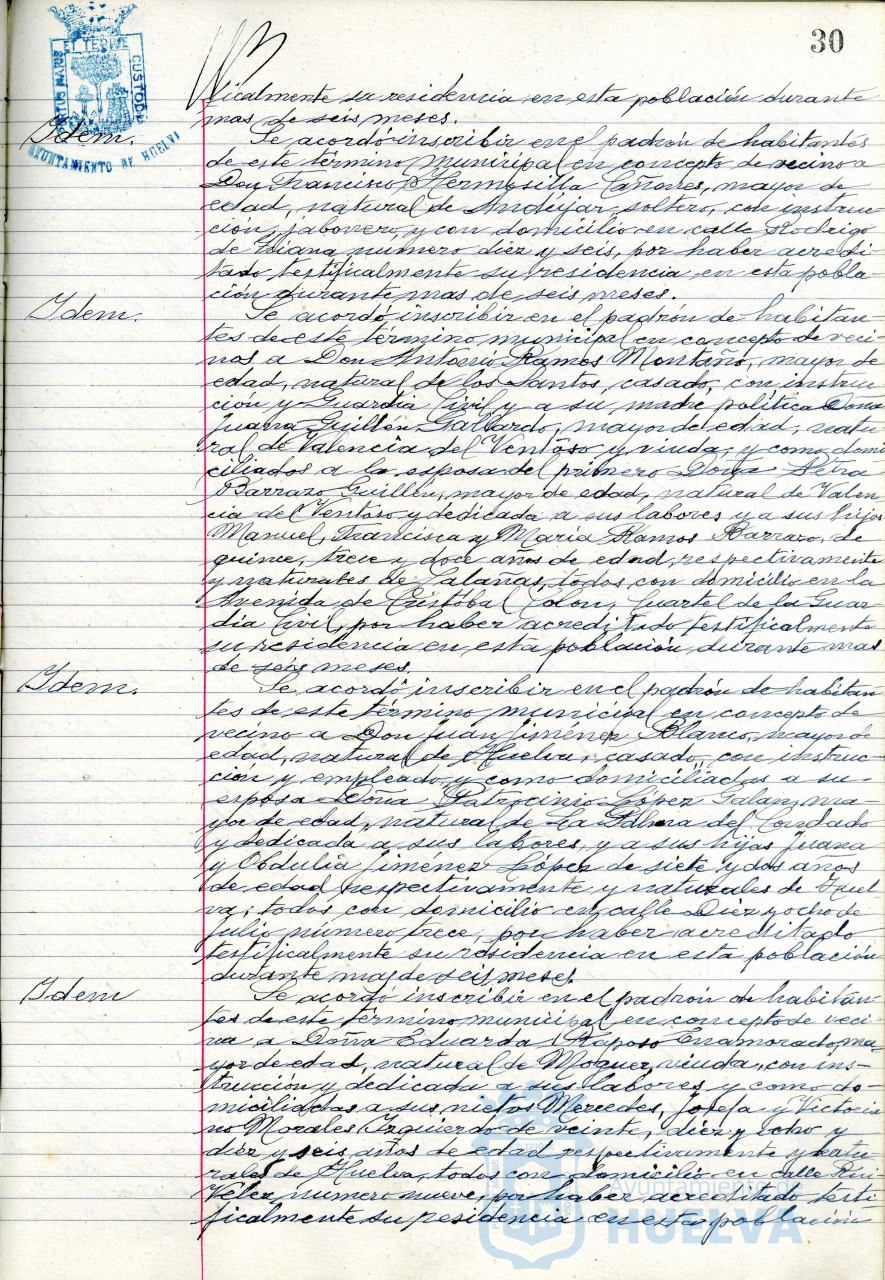 30
PORTUS MARIS ET TERRE CUSTODIA
AYUNTAMIENTO DE HUELVA
tificalmente su residencia en esta población durante
mas de seis meses.
Idem.
Se acordó inscribir en el padrón de habitantes
de este término municipal en concepto de vecino a
Don Francisco Hermosilla Cañones, mayor de
edad, natural de Andújar, soltero, con instruc-
ción, jabonero, y con domicilio en calle Rodrigo
de Triana número diez y seis, por haber acredi-
tado testificalmente su residencia en esta pobla-
ción durante mas de seis meses.
Idem.
Se acordó inscribir en el padrón de habitan-
tes de este término municipal en concepto de veci-
nos a Don Antonio Ramos Montaño, mayor de
edad, natural de los Santos, casado, con instruc-
ción y Guardia Civil y a su madre política Doña
Juana Guillén Gallardo, mayor de edad, natu-
ral de Valencia del Ventoso y viuda, y como domi-
ciliados a la esposa del primero Doña
Barrazo Guillén, mayor de edad, natural de Valen-
cia del Ventoso y dedicada a sus labores y a sus hijos
Manuel, Francisca y María Ramos Barrazo, de
quince, trece y doce años de edad, respectivamente
y naturales de Calañas, todos con domicilio en la
Avenida de Cristóbal Colon, Cuartel de la Guar-
dia Civil, por haber acreditado testificalmente
su residencia en esta población durante mas
de seis meses.
Idem.
Se acordó inscribir en el padrón de habitan-
tes de este término municipal en concepto de
vecino a Don Juan Jiménez Blanco, mayor de
edad, natural de Huelva, casado, con instruc-
ción y empleado, y como domiciliados a su
esposa Doña Patrocinio López Galan, ma-
yor de edad, natural de La Palma del Condado
y dedicada a sus labores, y a sus hijas Juana
y Obdulia Jiménez López de siete y dos años
de edad respectivamente y naturales de Huel-
va; todos con domicilio en calle Diez y ocho de
Julio número trece, por haber acreditado
testificalmente su residencia en esta población
durante mas de seis meses.
Idem
Se acordó inscribir en el padrón de habitan-
tes de este término municipal en concepto de veci-
na a Doña Eduarda Raposo Enamorado, ma-
yor de edad, natural de Moguer, viuda, con ins-
trucción y dedicada a sus labores y como do-
miciliadas a sus nietos Mercedes, Josefa y Victoria-
no Morales Izquierdo de veinte, diez y ocho y
diez y seis años de edad respectivamente y natu-
rales de Huelva, todos con domicilio en calle Rui
Vélez numero nueve, por haber acreditado testi-
ficalmente su residencia en esta población
Ayuntamiento de
HUELVA